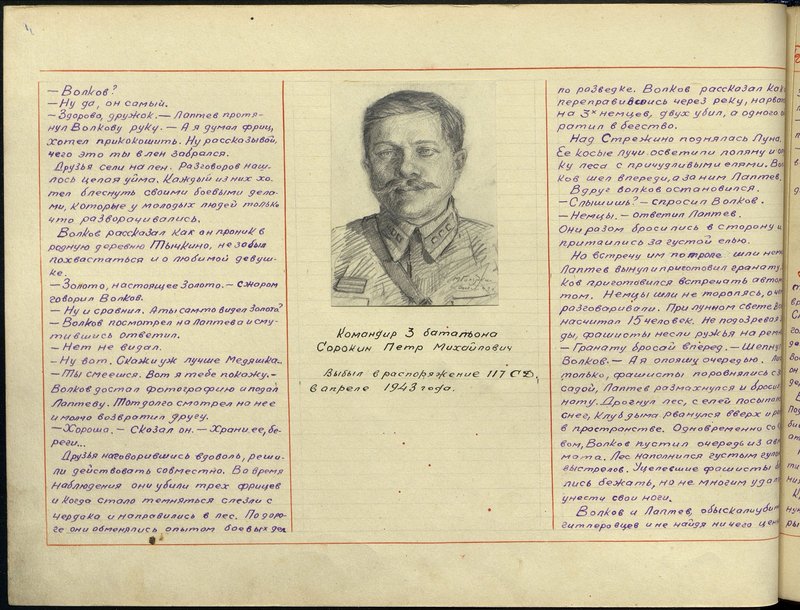 — Волков?
— Ну да, он самый.
— Здорова, дружок. — Лаптев протя-
нул Волкову руку. — А я думал фриц,
хотел прикокошить. Ну рассказывай,
чего это ты в лен забрался.
Друзья сели на лен. Разговоров наш-
лось целая уйма. Каждый из них хо-
тел блеснуть своими боевыми дела-
ми, которые у молодых людей только
что разворачивались.
Волков рассказал как он проник в
родную деревню Тычкино, не забыл
похвастаться и о любимой девуш-
ке.
— Золото, настоящее золото. — с жаром
говорил Волков.
— Ну и сравнил. А ты сам то видел золото?
— Волков посмотрел на Лаптева и сму-
тившись ответил.
— Нет не видал.
— Ну вот. Скажи уж лучше медяшка...
— Ты смеешся. Вот я тебе покажу. —
Волков достал фотографию и подал
Лаптеву. Тот долго смотрел на нее
и молча возвратил другу.
— Хороша. — Сказал он. — Храни ее, бе-
реги...
Друзья наговорившись вдоволь, реши-
ли действовать совместно. Во время
наблюдения они убили трех фрицев
и когда стало темняться слезли с
чердака и направились в лес. По доро-
ге они обменялись опытом боевых дел
Командир 3 батальона
Сорокин Петр Михайлович
Выбыл в распоряжение 117 СД,
в апреле 1943 года.
по разведке. Волков рассказал как
переправившись через реку,
на 3х немцев, двух убил, а одного
ратил в бегство.
Над Стрежино поднялась Луна.
Ее косые лучи осветили поляну и
ку леса с причудливыми елями.
ков шел впереди, а за ним Лаптев.
Вдруг волков остановился.
— Слышишь? — спросил Волков.
— Немцы. — ответил Лаптев.
Они разом бросились в сторону и
притаились за густой елью.
На встречу им по тропе шли
Лаптев вынул и приготовил гранату.
ков приготовился встречать
том. Немцы шли не торопясь,
разговаривали. При лунном свете
насчитал 15 человек. Не подозревая
ды, фашисты несли ружья на
— Гранату бросай вперед. —
Волков. — А я опояшу очередью.
только, фашисты поровнялись с
садой, Лаптев размахнулся и бросил
нату. Дрогнул лес, с елей
снег, клуб дыма рванулся вверх и
в пространстве. Одновременно со
вом, Волков пустил очередь из
мата. Лес наполнился густым
выстрелов. Уцелевшие фашисты
лись бежать, но не многим
унести свои ноги.
Волков и Лаптев, обыскали
гитлеровцев и не найдя ничего